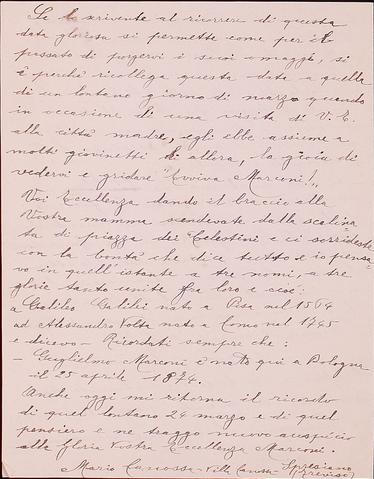 Se lo scrivente al ricorrere di questa
data gloriosa si permette come per il
passato di porgervi i suoi omaggi, si
è perchè ricollega questa data a quella
di un lontano giorno di marzo quando
in occasione di una visita di V. E.
alla città madre, egli ebbe assieme a
molti giovinetti di allora, la gioia di
vedervi e gridare "Evviva Marconi!"
Voi Eccellenza dando il braccio alla
Vostra mamma scendevate dalla scalina
ta di piazza dei Celestini e ci sorrideste
con la bontà che dice tutto e io pensa
vo in quell'istante a tre nomi, a tre
glorie tanto unite fra loro e cioè:
a Galileo Galilei nato a Pisa nel 1564
ad Alessandro Volta nato a Como nel 1745
e dicevo - Ricordati sempre che:
- Guglielmo Marconi è nato qui a Bologna
il 25 aprile 1874.
Anche oggi mi ritorna il ricordo
di quel lontano 24 marzo e di quel
pensiero e ne traggo nuovo auspicio
alla Gloria Vostra Eccellenza Marconi.
Mario Canossa - Villa Canossa - Spresiano
(Treviso)